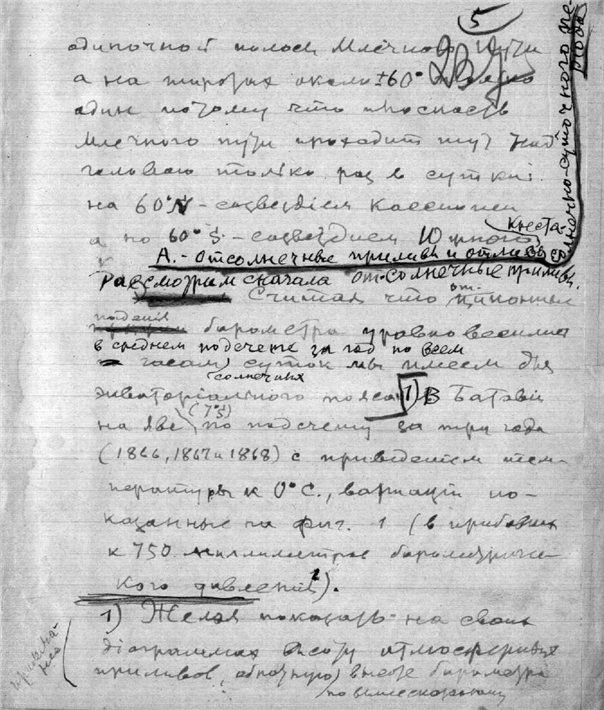 5
одиночной полосы Млечного Пути
а на широтах около ±60°
один потому что плоскость
Млечного пути проходит тут над
головою только раз в сутки:
на 60°N - созвездием Кассиопеи
а на 60°S. - созвездием Южного
Креста.
солнечно-суточного периода
А. - отсолнечные приливы и отливы
Рассмотрим сначала от-солнечные приливы.
Считая что от циклонных
падения барометра уравновесились
в среднем подсчете за год по всем
часам суток мы имеем для
солнечных
экваториального пояса 1) В Батавии
на Яве (7°S) по подсчету за три года
(1866, 1867 и 1868) с приведением тем-
пературы к 0°С., вариации по-
казанные на фиг. 1 (в прибавках
к 750 миллиметрам барометричес-
кого давления).
1) Желая показать на своих
диаграммах высоту атмосферных
приливов, обратную высоте барометра
по вышесказанному